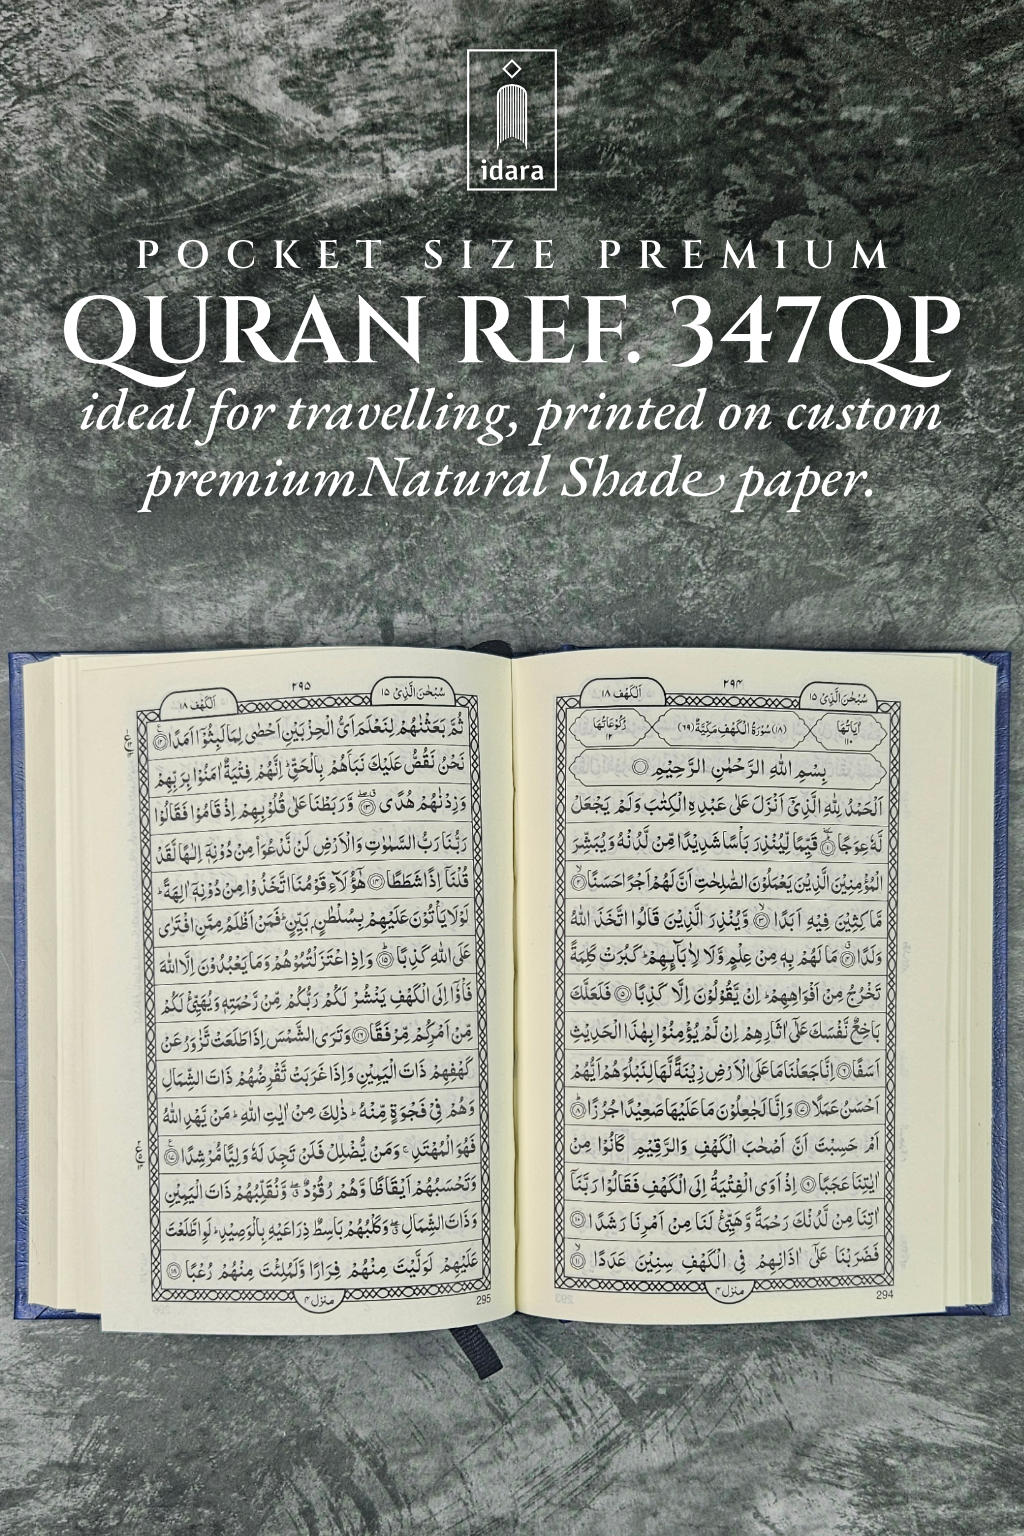 idara
POCKET SIZE PREMIUM
QURAN REF. 347QP
ideal for travelling, printed on custom
premiumNatural Shade paper.
سُبْحٰنَ الَّذِيْ ١٥
٢٩٤
اَلْكَهْف ١٨
اٰيَاتُهَا ١١٠
(١٨) سُوْرَةُ الْكَهْفِ مَكِّيَّةٌ (٦٩)
رُكُوْعَاتُهَا ١٢
بِسْمِ اللّٰهِ الرَّحْمٰنِ الرَّحِيْمِ
اَلْحَمْدُ لِلّٰهِ الَّذِيْۤ اَنْزَلَ عَلٰى عَبْدِهِ الْكِتٰبَ وَلَمْ يَجْعَلْ
لَّهٗ عِوَجًا ١ قَيِّمًا لِّيُنْذِرَ بَاْسًا شَدِيْدًا مِّنْ لَّدُنْهُ وَيُبَشِّرَ
الْمُؤْمِنِيْنَ الَّذِيْنَ يَعْمَلُوْنَ الصّٰلِحٰتِ اَنَّ لَهُمْ اَجْرًا حَسَنًا ٢
مَّاكِثِيْنَ فِيْهِ اَبَدًا ٣ وَّيُنْذِرَ الَّذِيْنَ قَالُوا اتَّخَذَ اللّٰهُ
وَلَدًا ٤ مَا لَهُمْ بِهٖ مِنْ عِلْمٍ وَّلَا لِاٰبَآئِهِمْ كَبُرَتْ كَلِمَةً
تَخْرُجُ مِنْ اَفْوَاهِهِمْ اِنْ يَّقُوْلُوْنَ اِلَّا كَذِبًا ٥ فَلَعَلَّكَ
بَاخِعٌ نَّفْسَكَ عَلٰۤى اٰثَارِهِمْ اِنْ لَّمْ يُؤْمِنُوْا بِهٰذَا الْحَدِيْثِ
اَسَفًا ٦ اِنَّا جَعَلْنَا مَا عَلَى الْاَرْضِ زِيْنَةً لَّهَا لِنَبْلُوَهُمْ اَيُّهُمْ
اَحْسَنُ عَمَلًا ٧ وَاِنَّا لَجٰعِلُوْنَ مَا عَلَيْهَا صَعِيْدًا جُرُزًا ٨
اَمْ حَسِبْتَ اَنَّ اَصْحٰبَ الْكَهْفِ وَالرَّقِيْمِ كَانُوْا مِنْ
اٰيٰتِنَا عَجَبًا ٩ اِذْ اَوَى الْفِتْيَةُ اِلَى الْكَهْفِ فَقَالُوْا رَبَّنَاۤ
اٰتِنَا مِنْ لَّدُنْكَ رَحْمَةً وَّهَيِّئْ لَنَا مِنْ اَمْرِنَا رَشَدًا ١٠
فَضَرَبْنَا عَلٰۤى اٰذَانِهِمْ فِي الْكَهْفِ سِنِيْنَ عَدَدًا ١١
منزل ٤
294
سُبْحٰنَ الَّذِيْ ١٥
٢٩٥
اَلْكَهْف ١٨
ثُمَّ بَعَثْنٰهُمْ لِنَعْلَمَ اَيُّ الْحِزْبَيْنِ اَحْصٰى لِمَا لَبِثُوْۤا اَمَدًا ١٢
نَحْنُ نَقُصُّ عَلَيْكَ نَبَاَهُمْ بِالْحَقِّ اِنَّهُمْ فِتْيَةٌ اٰمَنُوْا بِرَبِّهِمْ
وَزِدْنٰهُمْ هُدًى ١٣ وَّرَبَطْنَا عَلٰى قُلُوْبِهِمْ اِذْ قَامُوْا فَقَالُوْا
رَبُّنَا رَبُّ السَّمٰوٰتِ وَالْاَرْضِ لَنْ نَّدْعُوَا۠ مِنْ دُوْنِهٖۤ اِلٰهًا لَّقَدْ
قُلْنَاۤ اِذًا شَطَطًا ١٤ هٰۤؤُلَآءِ قَوْمُنَا اتَّخَذُوْا مِنْ دُوْنِهٖۤ اٰلِهَةً
لَوْلَا يَاْتُوْنَ عَلَيْهِمْ بِسُلْطٰنٍۭ بَيِّنٍ فَمَنْ اَظْلَمُ مِمَّنِ افْتَرٰى
عَلَى اللّٰهِ كَذِبًا ١٥ وَاِذِ اعْتَزَلْتُمُوْهُمْ وَمَا يَعْبُدُوْنَ اِلَّا اللّٰهَ
فَاْوٗۤا اِلَى الْكَهْفِ يَنْشُرْ لَكُمْ رَبُّكُمْ مِّنْ رَّحْمَتِهٖ وَيُهَيِّئْ لَكُمْ
مِّنْ اَمْرِكُمْ مِّرْفَقًا ١٦ وَتَرَى الشَّمْسَ اِذَا طَلَعَتْ تَّزٰوَرُ عَنْ
كَهْفِهِمْ ذَاتَ الْيَمِيْنِ وَاِذَا غَرَبَتْ تَّقْرِضُهُمْ ذَاتَ الشِّمَالِ
وَهُمْ فِيْ فَجْوَةٍ مِّنْهُ ذٰلِكَ مِنْ اٰيٰتِ اللّٰهِ مَنْ يَّهْدِ اللّٰهُ
فَهُوَ الْمُهْتَدِ وَمَنْ يُّضْلِلْ فَلَنْ تَجِدَ لَهٗ وَلِيًّا مُّرْشِدًا ١٧
وَتَحْسَبُهُمْ اَيْقَاظًا وَّهُمْ رُقُوْدٌ وَّنُقَلِّبُهُمْ ذَاتَ الْيَمِيْنِ
وَذَاتَ الشِّمَالِ وَكَلْبُهُمْ بَاسِطٌ ذِرَاعَيْهِ بِالْوَصِيْدِ لَوِ اطَّلَعْتَ
عَلَيْهِمْ لَوَلَّيْتَ مِنْهُمْ فِرَارًا وَّلَمُلِئْتَ مِنْهُمْ رُعْبًا ١٨
منزل ٤
295